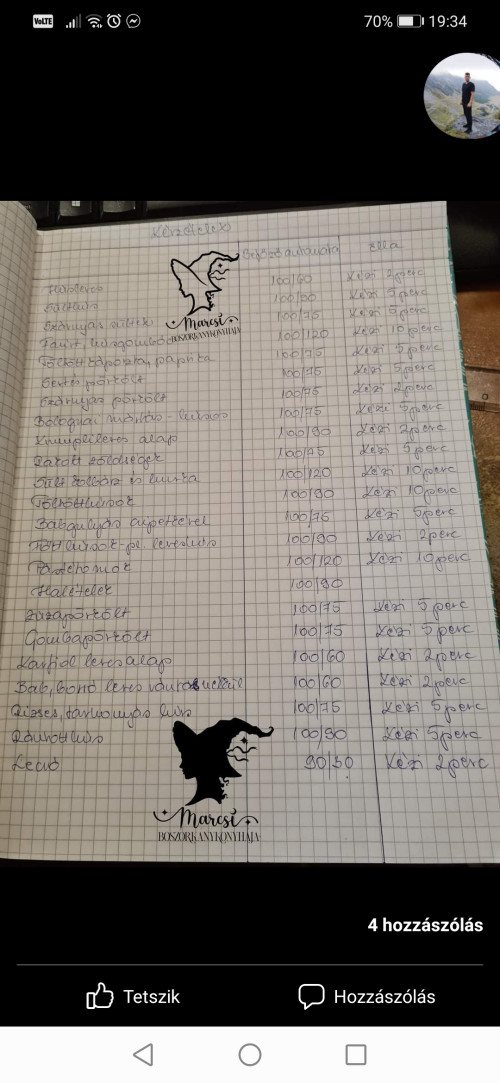 VoLTE 70% 19:34
Készételek
Befőző automata Ella
Húsleves 100/60 Kézi 2perc
Sülthús 100/90 Kézi 5perc
Szárnyas sültek 100/75 Kézi 5perc
Fasírt, húsgombóc 100/120 Kézi 10perc
Töltött káposzta, paprika 100/75 Kézi 5perc
Sertés pörkölt 100/75 Kézi 5perc
Szárnyas pörkölt 100/75 Kézi 2perc
Bolognai mártás - húsos 100/75 Kézi 5perc
Krumplileves alap 100/90 Kézi 2perc
Rakott zöldségek 100/75 Kézi 5perc
Sült kolbász és hurka 100/120 Kézi 10perc
Töltött húsok 100/90 Kézi 10perc
Babgulyás 100/75 Kézi 5perc
Főtt húsok - pl. leveshús 100/90 Kézi 2perc
Pástétomok 100/120 Kézi 10perc
Halételek 100/90
Zúzapörkölt 100/75 Kézi 5perc
Gombapörkölt 100/75 Kézi 5perc
Karfiol leves alap 100/60 Kézi 2perc
Bab, borsó leves 100/60 Kézi 2perc
Rizses, tarhonyás hús 100/75 Kézi 5perc
Rántott hús 100/90 Kézi 5perc
Lecsó 90/50 Kézi 2perc
Marcsi
BOSZORKÁNYKONYHÁJA
Marcsi
BOSZORKÁNYKONYHÁJA
4 hozzászólás
Tetszik Hozzászólás